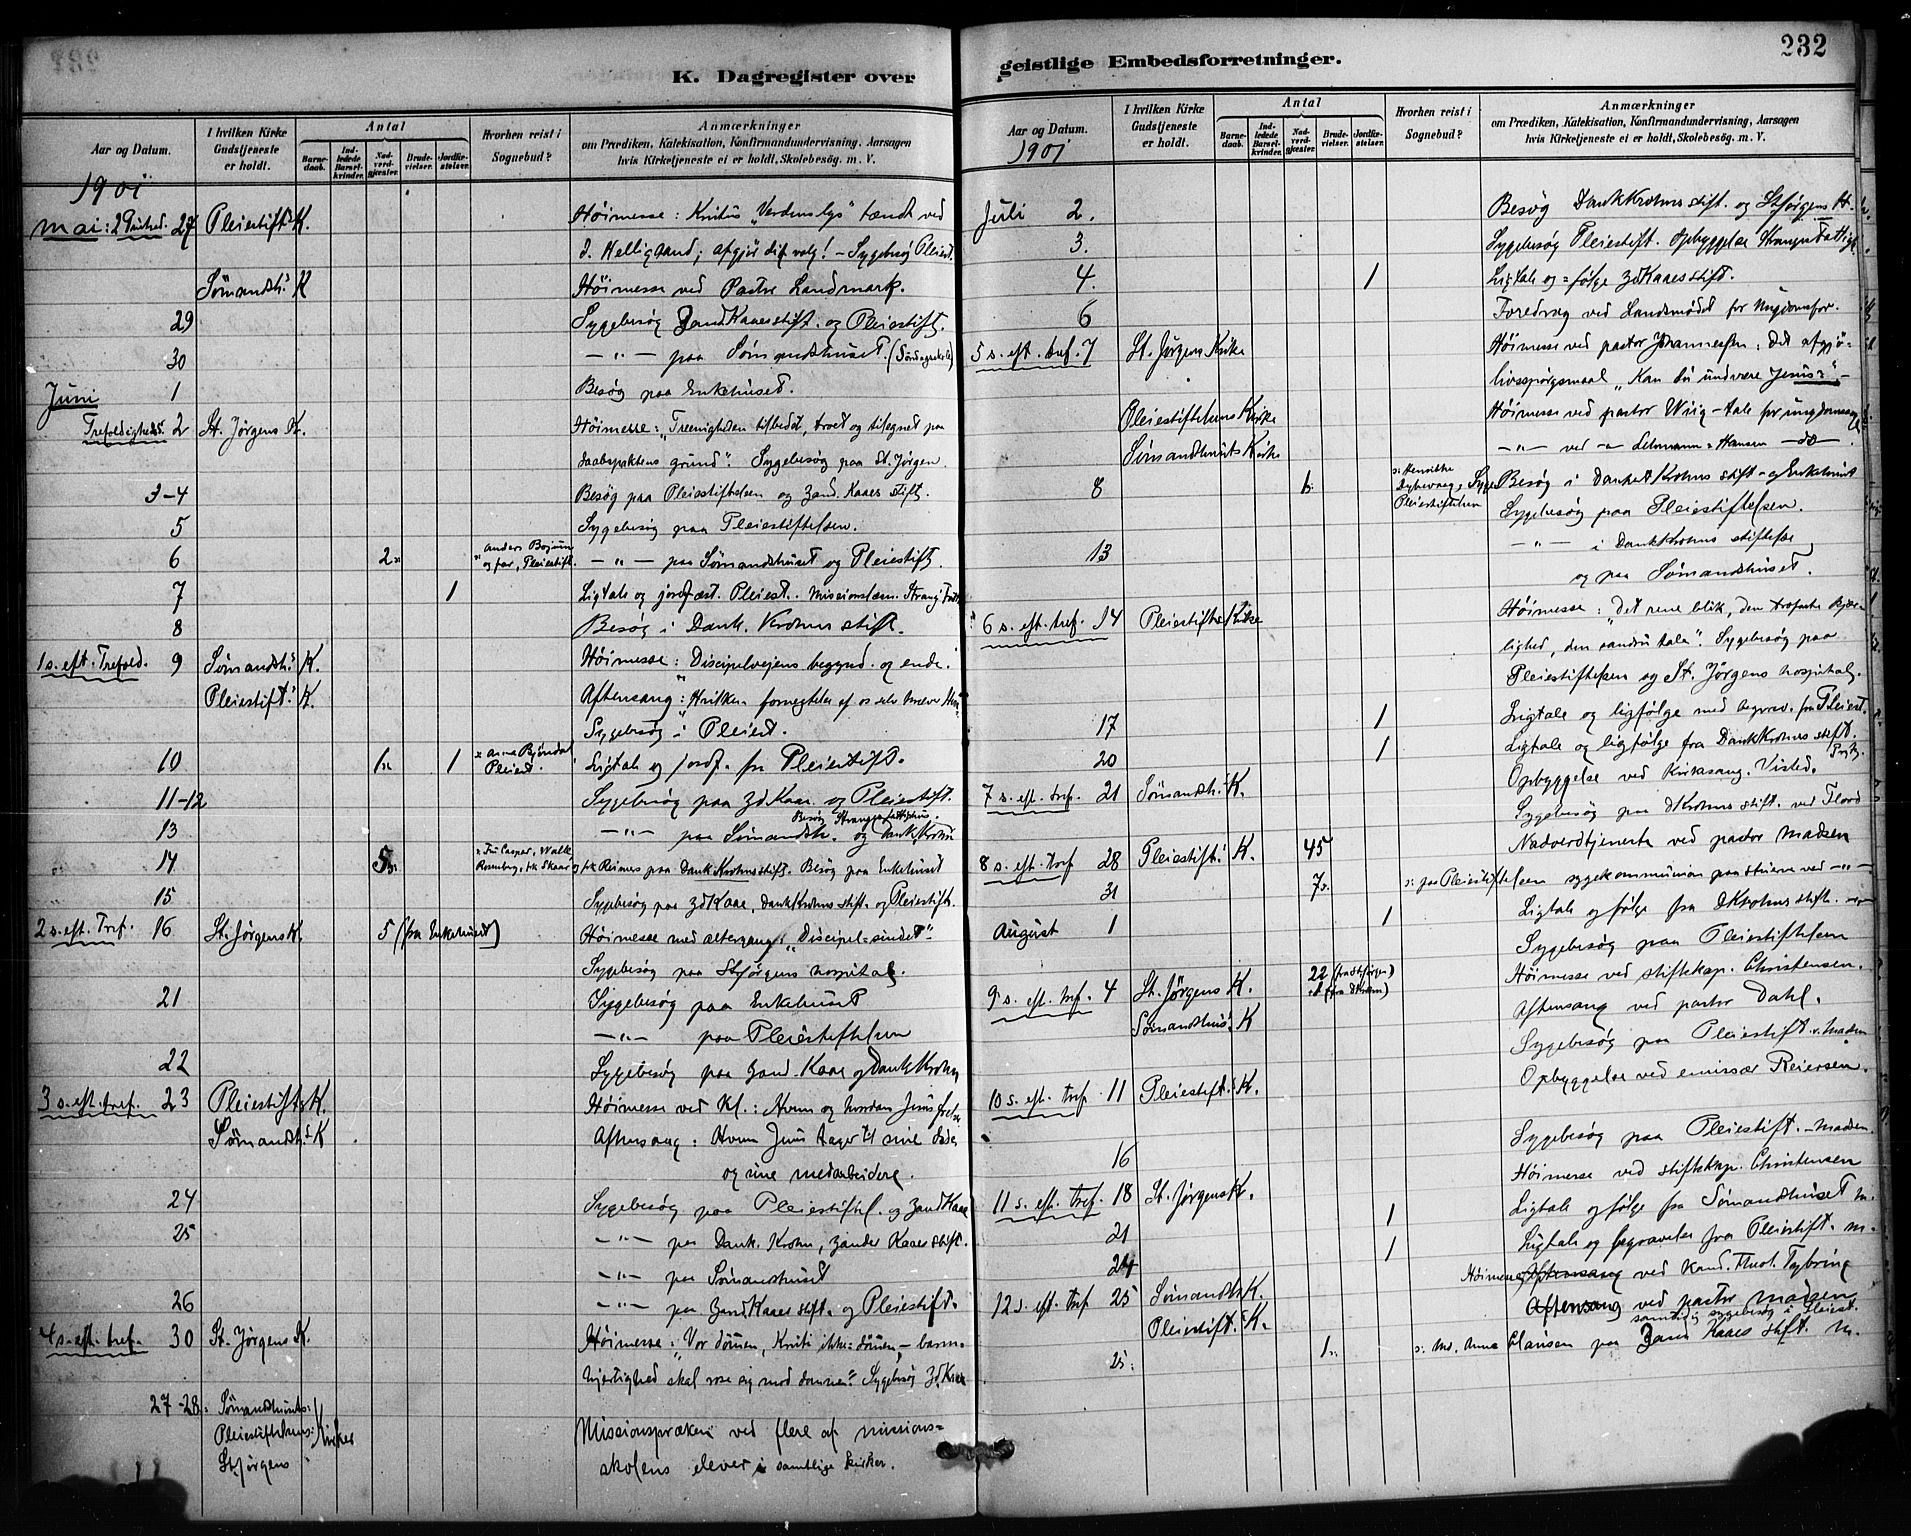 232
K. Dagregister over
Aar og Datum.
I hvilken Kirke Gudstjeneste er holdt.
Antal
Barnedaab.
Indledede Barselkvinder.
Nadverdgjæster.
Brudevielser.
Jordfæstelser.
Hvorhen reist i Sognebud?
Anmærkninger
om Prædiken, Katekisation, Konfirmandundervisning, Aarsagen
hvis Kirketjeneste ei er holdt, Skolebesög. m. V.
1901
Mai: 27 Pleiestift. K. Höimesse: Kristus "Verdens lys" tændt ved
d. Helligaand; afgjør dit valg! - Sygebesög Pleiest.
Sömandsh: K Höimesse ved Pastor Landmark.
29 Sygebesög Zand Kaaes stift. og Pleiestift.
30 -"- paa Sömandshuset.
Juni 1 Besög paa Enkehuset.
Trefoldigheds 2 St. Jörgens K. Höimesse: "Treenigheden tilbedt, troet og tilegnet paa
daabspaktens grund". Sygebesög paa St. Jörgen.
3-4 Besög paa Pleiestiftelsen og Zand. Kaaes stift.
5 Sygebesög paa Pleiestiftelsen.
6 2 Anders Bojum og far, Pleiestift. -"- paa Sömandshuset og Pleiestift.
7 1 Ligtale og jordfæst. Pleiest.
8 Besög i Dank. Krohns stift.
1 s. eft. Trefold. 9 Sömandsh: K. Höimesse: Discipelveiens begynd. og ende.
Pleiestift: K. Aftensang:
Sygebesög i Pleiest.
10 1 1 Anna Bjöndal Pleiest. Ligtale og jordf. fra Pleiestift.
11-12 Sygebesög paa Zd Kaae. og Pleiestift.
13 -"- paa Sömandsh. og Dank. Krohn
14 5 Besög paa Enkehuset
15 Sygebesög paa Zd Kaae, Dank Krohns stift. og Pleiestift.
2 s. eft. Tref. 16 St. Jörgens K. 5 (fra Enkehuset) Höimesse med altergang: "Discipel=sindet"
Sygebesög paa St Jörgens hospital.
21 Sygebesög paa Enkehuset
-"- paa Pleiestiftelsen
22 Sygebesög paa Zand. Kaae og Dank Krohn
3 s. eft. tref. 23 Pleiestift. K. Höimesse ved Kl.: Hvem og hvordan Jesus frelse
Sömandsh: K Aftensang: Hvem Jesus tager til sine
og sine medarbeidere.
24 Sygebesög paa Pleiestiftel. og Zand Kaae
25 -"- paa Dank. Krohn, Zander Kaaes stift.
-"- paa Sömandshuset
26 -"- paa Zand Kaaes stift. og Pleiestift.
4 s. eft. tref. 30 St. Jörgens K. Höimesse: "Vor dömen, Kristi ikke=dömen, - barm=
hjertighed skal rose sig mod dommen". Sygebesög Zd. Kaae
27-28: Sömandshusets:
Pleiestiftelsens: Kirker Missionspræken ved flere af missions=
St. Jörgens skolens elever i samtlige kirker.
geistlige Embedsforretninger.
Aar og Datum.
I hvilken Kirke Gudstjeneste er holdt.
Antal
Barnedaab.
Indledede Barselkvinder.
Nadverdgjæster.
Brudevielser.
Jordfæstelser.
Hvorhen reist i Sognebud?
Anmærkninger
om Prædiken, Katekisation, Konfirmandundervisning, Aarsagen
hvis Kirketjeneste ei er holdt, Skolebesög. m. V.
1901
Juli 2. Besög Dank Krohns stift. og St Jörgens H.
3. Sygebesög Pleiestift. Opbyggelse Stranges Fattigh.
4. 1 Ligtale og =fölge Zd Kaaes stift.
6 Foredrag ved Landsmödet for Ungdomsfor.
5 s. eft. tref. 7 St. Jörgens Kirke Höimesse ved pastor Johannessen: Det afgjö=
livsspörgsmaal "Kan du undvære Jesus?" -
Pleiestiftelsens Kirke Höimesse ved pastor Wiig - tale for ungdomssag
Sömandshusets Kirke -"- ved -"- Lehmann=Hansen -do-.
8 Henrikke Dybevaag, Pleiestiftelsen Besög i Dankert Krohns stift - og Enkehuset
Sygebesög paa Pleiestiftelsen.
13 -"- i Dank Krohns stiftelse
og paa Sömandshuset.
6 s. eft. tref. 14 Pleiestifts Kirke Höimesse: "Det rene blik, den trofaste kjær=
lighed, den sanddru tale". Sygebesög paa
Pleiestiftelsen og St. Jörgens hospital.
17 1 Ligtale og ligfölge med begrav. fra Pleiest.
20 1 Ligtale og ligfölge fra Dank Krohns stift.
7 s. eft. tref. 21 Sömandsh: K. Opbyggelse ved Kirkesang. Visted.
Sygebesög paa D Krohns stift. ved Flood
8 s. eft. tref 28 Pleiestift: K. 45 Nadverdtjeneste ved pastor Madsen
31 7 paa Pleiestiftelsen sygekommunion paa stuerne ved -"-
August 1 1 Ligtale og fölge fra D Krohns stift. -"-
Sygebesög paa Pleiestiftelsen
9 s. eft. tref. 4 St. Jörgens K. 22 (fra St Jörgen) Höimesse ved stiftskap. Christensen.
Sömandshus: K Aftensang ved pastor Dahl.
Sygebesög paa Pleiestift. v. Madsen
10 s. eft. tref. 11 Pleiestift: K. Opbyggelse ved emissær Reiersen.
16 Sygebesög paa Pleiestift. - Madsen.
11 s. eft. tref. 18 St. Jörgens K. Höimesse ved stiftskap. Christensen
21 1 Ligtale og fölge fra Sömandshuset M.
24 1 Ligtale og begravelse fra Pleiestift. M.
12 s. eft. tref 25 Sömandsh K. Höimesse Aftensang ved Kand. theol. Tybring
Pleiestift. K. Aftensang ved pastor Madsen
samtidig sygebesög i Pleiest.
25: 1 Anna Clausen paa Zand Kaaes stift. M.